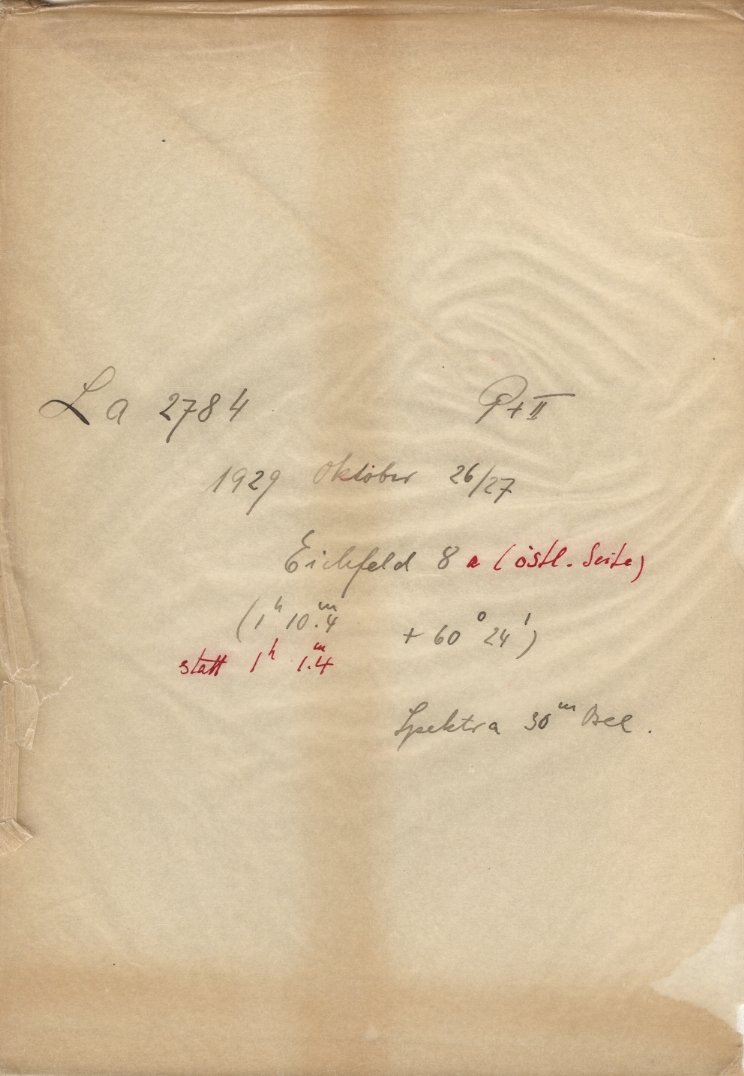 La 2784 P+II
1929 Oktober 26/27
Eichfeld 8 a (östl. Seite)
(1ʰ 10.ᵐ4 + 60° 24')
statt 1ʰ 1.ᵐ4
Spektra 30ᵐ Bel.